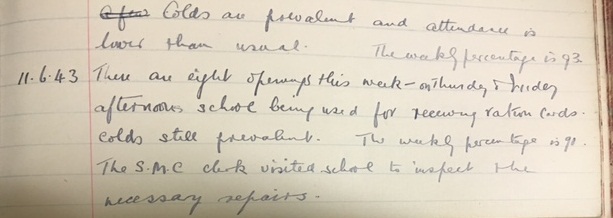 A few Colds are prevalent and attendance is
lower than usual. The weekly percentage is 93
11.6.43 There are eight openings this week - on Thursday & Friday
afternoons school being used for receiving ration cards.
Colds still prevalent. The weekly percentage is 90.
The S.M.C clerk visited school to inspect the
necessary repairs.